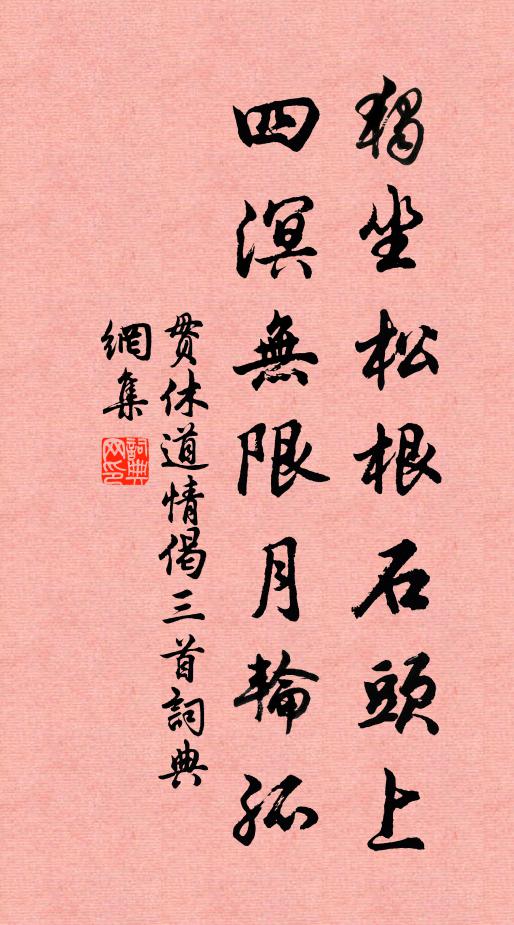 獨坐松根石頭上
四溟無限月輪孤
贯休道情偈三首詞典
網集
詞典網印